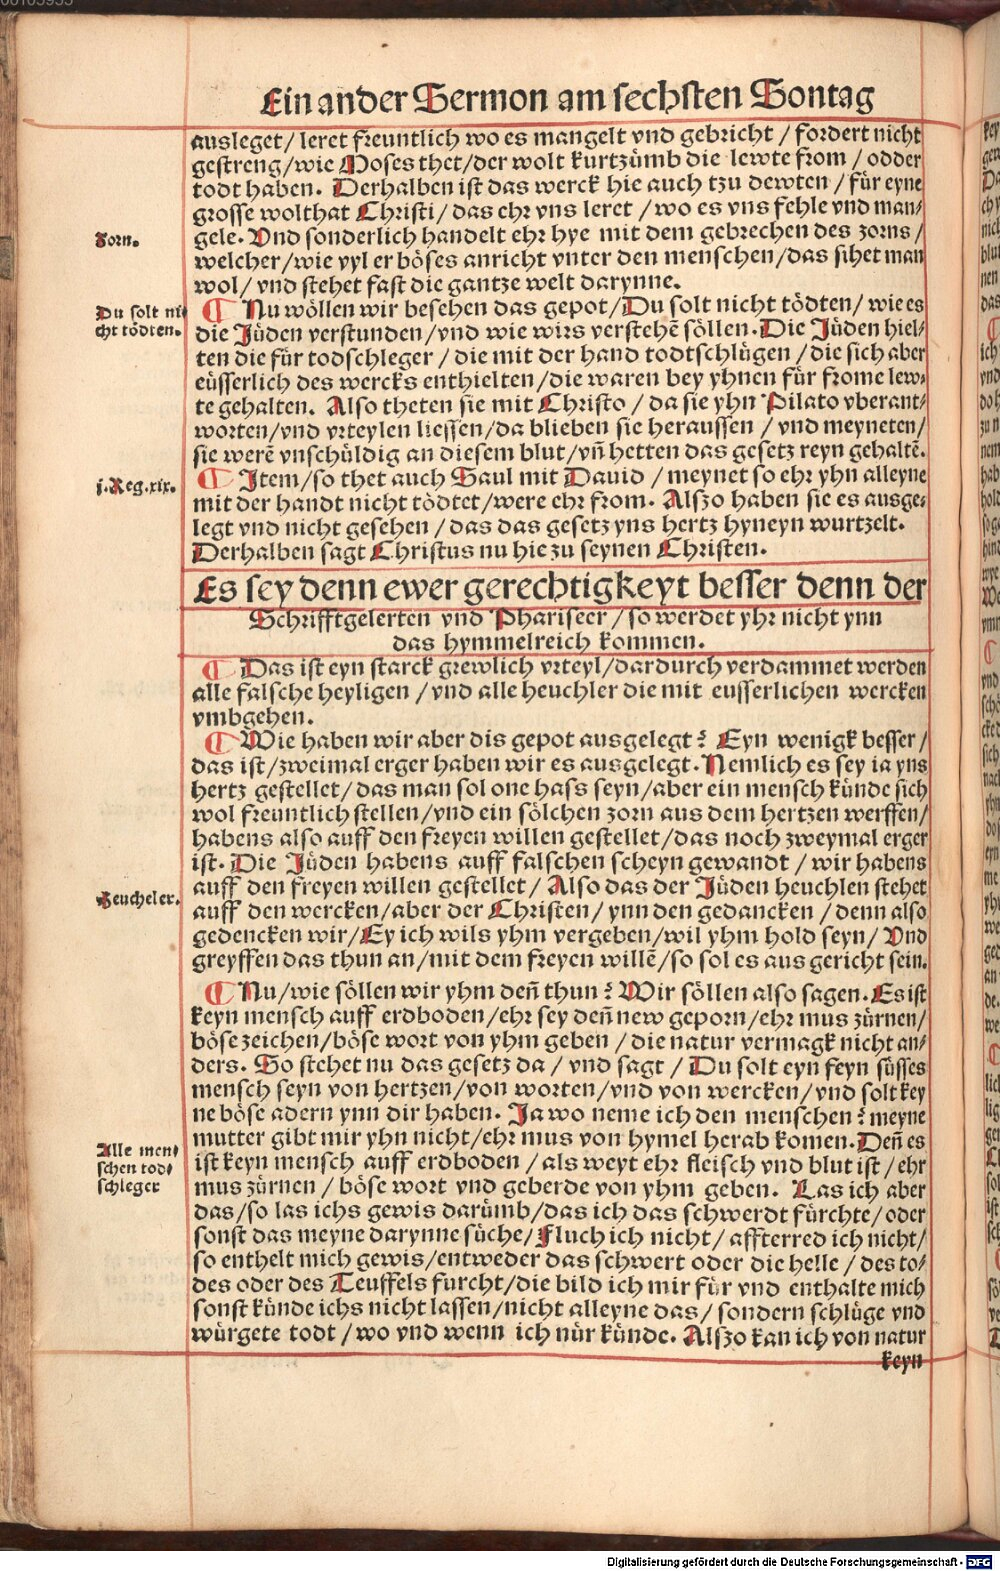 Ein ander Sermon am sechsten Sontag
ausleget / leret freuntlich wo es mangelt vnd gebricht / fordert nicht
gestreng / wie Moses thet / der wolt kurtzůmb die lewte from / odder
todt haben. Derhalben ist das werck hie auch tzu dewten / für eyne
grosse wolthat Christi / das ehr vns leret / wo es vns fehle vnd man⸗
Zorn.
gele. Vnd sonderlich handelt ehr hye mit dem gebrechen des zorns /
welcher / wie vyl er böses anricht vnter den menschen / das sihet man
wol / vnd stehet fast die gantze welt darynne.
Du solt ni⸗
cht tödten.
¶ Nu wöllen wir besehen das gepot / Du solt nicht tödten / wie es
die Jüden verstunden / vnd wie wirs verstehē söllen. Die Jüden hiel⸗
ten die für todschleger / die mit der hand todtschlügen / die sich aber
eüsserlich des wercks enthielten / die waren bey yhnen für frome lew⸗
te gehalten. Also theten sie mit Christo / da sie yhn Pilato vberant⸗
worten / vnd vrteylen liessen / da blieben sie heraussen / vnd meyneten /
sie werē vnschüldig an diesem blut / vn̄ hetten das gesetz reyn gehaltē.
j. Reg. xix.
¶ Item / so thet auch Saul mit Dauid / meynet so ehr yhn alleyne
mit der handt nicht tödtet / were ehr from. Alszo haben sie es ausge⸗
legt vnd nicht gesehen / das das gesetz yns hertz hyneyn wurtzelt.
Derhalben sagt Christus nu hie zu seynen Christen.
Es sey denn ewer gerechtigkeyt besser denn der
Schrifftgelerten vnd Phariseer / so werdet yhr nicht ynn
das hymmelreich kommen.
¶ Das ist eyn starck grewlich vrteyl / dardurch verdammet werden
alle falsche heyligen / vnd alle heuchler die mit eusserlichen wercken
vmbgehen.
¶ Wie haben wir aber dis gepot ausgelegt? Eyn wenigk besser /
das ist / zweimal erger haben wir es ausgelegt. Nemlich es sey ia yns
hertz gestellet / das man sol one hass seyn / aber ein mensch künde sich
wol freuntlich stellen / vnd ein sölchen zorn aus dem hertzen werffen /
habens also auff den freyen willen gestellet / das noch zweymal erger
ist. Die Jüden habens auff falschen scheyn gewandt / wir habens
Heucheler.
auff den freyen willen gestellet / Also das der Jüden heuchlen stehet
auff den wercken / aber der Christen / ynn den gedancken / denn also
gedencken wir / Ey ich wils yhm vergeben / wil yhm hold seyn / Vnd
greyffen das thun an / mit dem freyen willē / so sol es aus gericht sein.
¶ Nu / wie söllen wir yhm den̄ thun? Wir söllen also sagen. Es ist
keyn mensch auff erdboden / ehr sey den̄ new geporn / ehr mus zürnen /
böse zeichen / böse wort von yhm geben / die natur vermagk nicht an⸗
ders. So stehet nu das gesetz da / vnd sagt / Du solt eyn feyn süsses
mensch seyn von hertzen / von worten / vnd von wercken / vnd solt key
ne böse adern ynn dir haben. Ja wo neme ich den menschen? meyne
mutter gibt mir yhn nicht / ehr mus von hymel herab komen. Den̄ es
Alle men⸗
schen tod⸗
schleger
ist keyn mensch auff erdboden / als weyt ehr fleisch vnd blut ist / ehr
mus zürnen / böse wort vnd geberde von yhm geben. Las ich aber
das / so las ichs gewis darůmb / das ich das schwerdt fürchte / oder
sonst das meyne darynne süche / Fluch ich nicht / affterred ich nicht /
so enthelt mich gewis / entweder das schwert oder die helle / des to⸗
des oder des Teuffels furcht / die bild ich mir für vnd enthalte mich
sonst künde ichs nicht lassen / nicht alleyne das / sondern schlüge vnd
würgete todt / wo vnd wenn ich nür künde. Alszo kan ich von natur
keyn
Digitalisierung gefördert durch die Deutsche Forschungsgemeinschaft - DFG